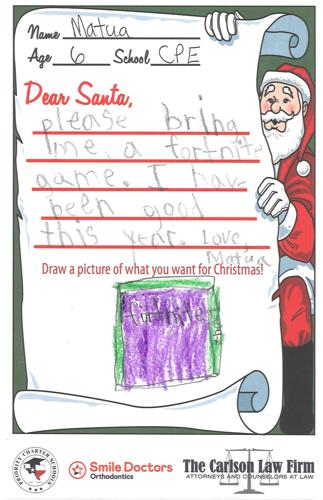 Name Matua
Age 6 School CPE
Dear Santa,
please bring
me a fortnite
game. I have
been good
this year. Love,
Matua
Draw a picture of what you want for Christmas!
fortnite
PRIORITY CHARTER SCHOOLS
Smile Doctors
Orthodontics
The Carlson Law Firm
ATTORNEYS AND COUNSELORS AT LAW